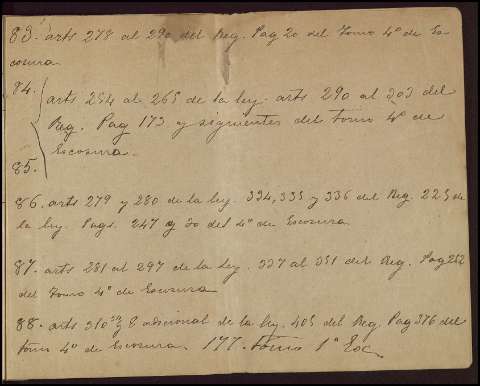 83. arts 278 al 290 del Reg. Pag 20 del Tomo 4º de Es
cosura.
84.
arts 254 al 265 de la ley. arts 290 al 303 del
Reg. Pag 173 y siguientes del tomo 4º de
Escosura.
85.
86. arts 279 y 280 de la ley. 334, 335 y 336 del Reg. 225 de
la ley. Pags. 247 y 20 del 4º de Escosura
87. arts 281 al 297 de la Ley. 337 al 351 del Reg. Pag 252
del Tomo 4º de Escosura
88. arts 310 y 8 adicional de la ley. 405 del Reg. Pag 376 del
tomo 4º de Escosura. 177. tomo 1º Esc